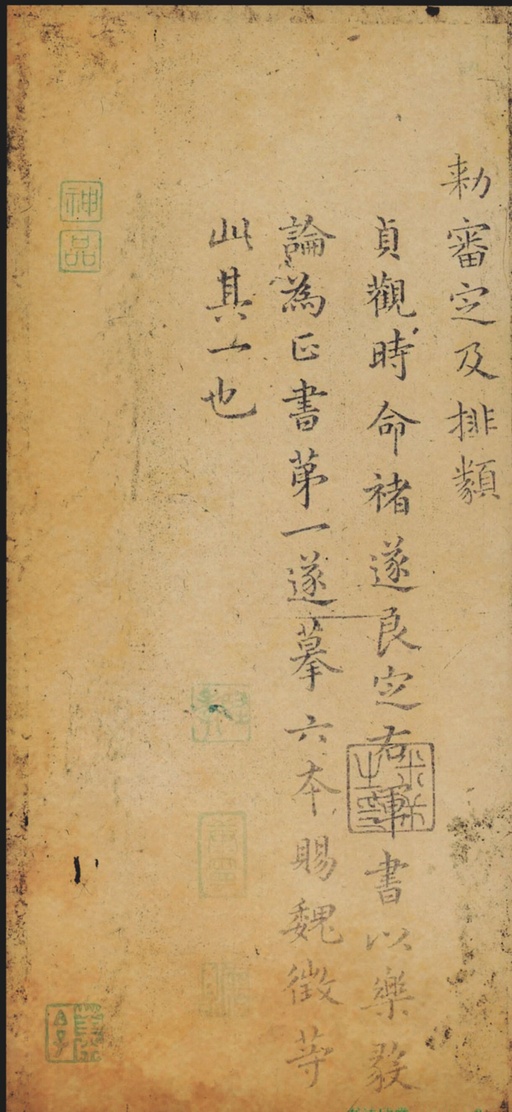 勑審定及排類
貞觀時命褚遂良定右軍書以樂毅
論為正書苐一遂摹六本賜魏徵等
此其一也
神品